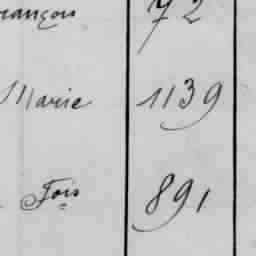 rançois 72
Marie 1139
Fois 891